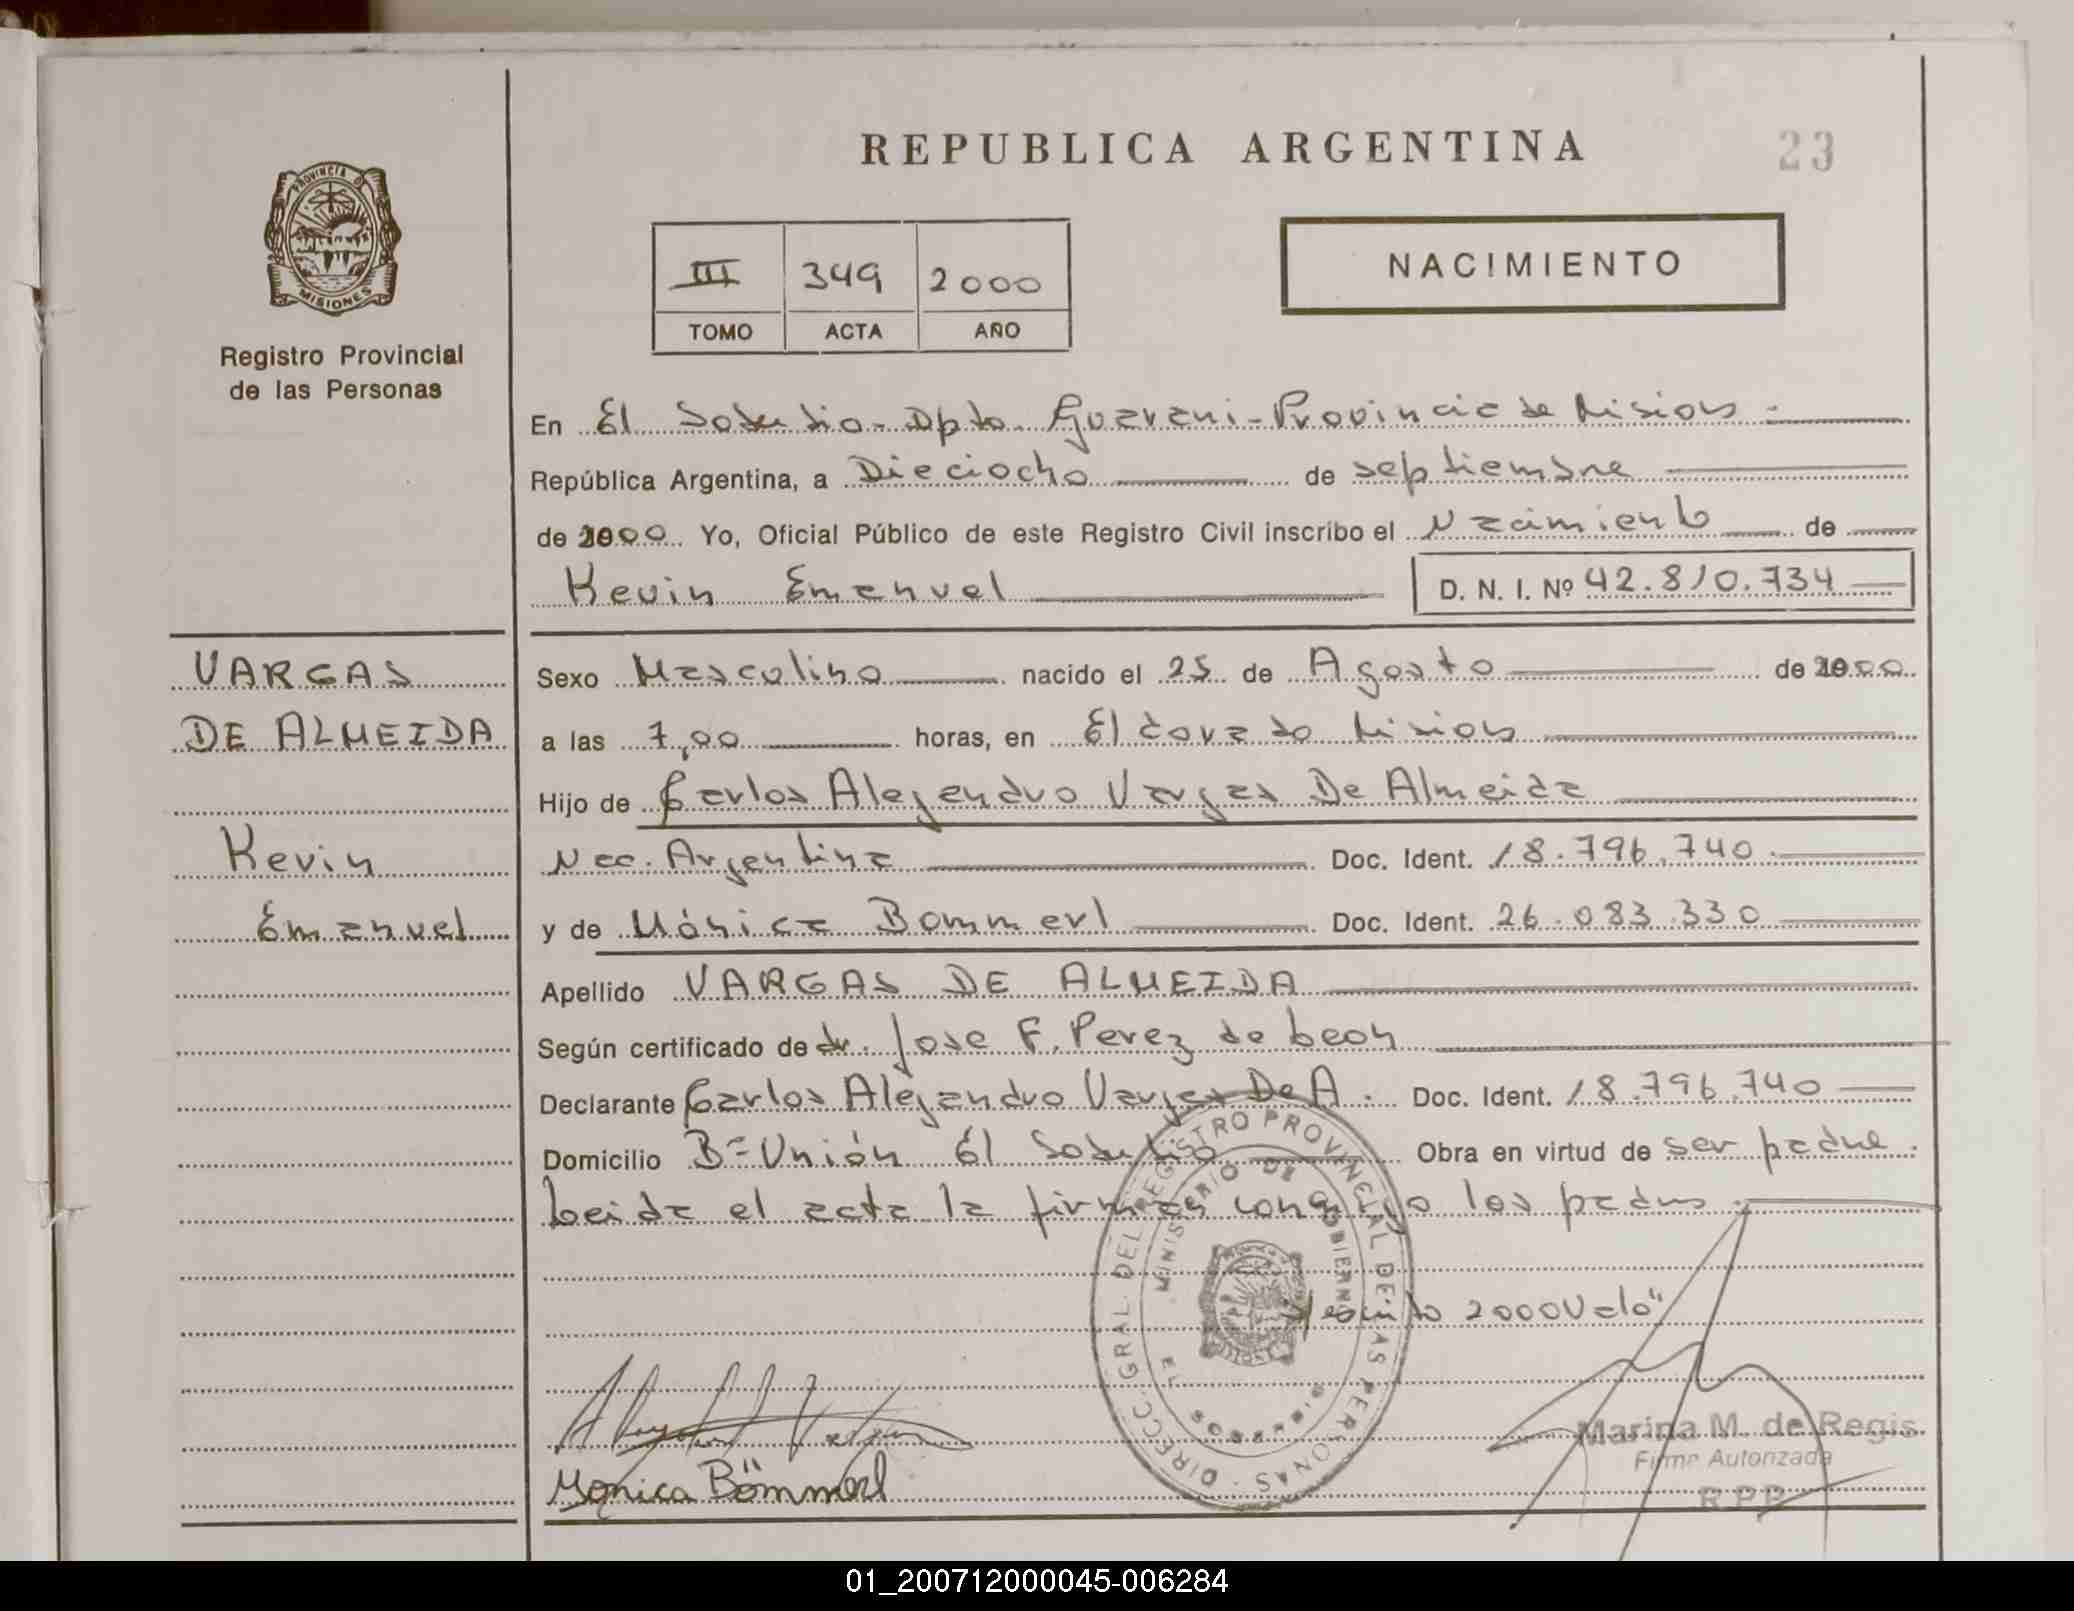 REPUBLICA ARGENTINA
23
PROVINCIA DE
MISIONES
Registro Provincial
de las Personas
III 349 2000
TOMO ACTA AÑO
NACIMIENTO
En El Soberbio - Dpto. Guarani - Provincia de Misiones.
República Argentina, a Dieciocho de septiembre
de 2000 Yo, Oficial Público de este Registro Civil inscribo el Nacimiento de
Kevin Emanuel D. N. I. Nº 42.810.734
VARGAS
DE ALMEIDA
Kevin
Emanuel
Sexo Masculino nacido el 25 de Agosto de 2000
a las 7,00 horas, en Eldorado Misiones
Hijo de Carlos Alejandro Vargas De Almeida
Nac. Argentina Doc. Ident. 18.796.740.
y de Mónica Bommerl Doc. Ident. 26.083.330
Apellido VARGAS DE ALMEIDA
Según certificado de dr. Jose F. Perez de Leon
Declarante Carlos Alejandro Vargas De A. Doc. Ident. 18.796.740
Domicilio Bº Unión El Soberbio Obra en virtud de ser padre.
Leida el acta la firman conmigo los padres.
2000 Vale"
DIRECC. GRAL. DEL REGISTRO PROVINCIAL DE LAS PERSONAS
MINISTERIO DE GOBIERNO
MISIONES
Monica Bömmerl
Marina M. de Regis
Firma Autorizada
R.P.P.
01_200712000045-006284